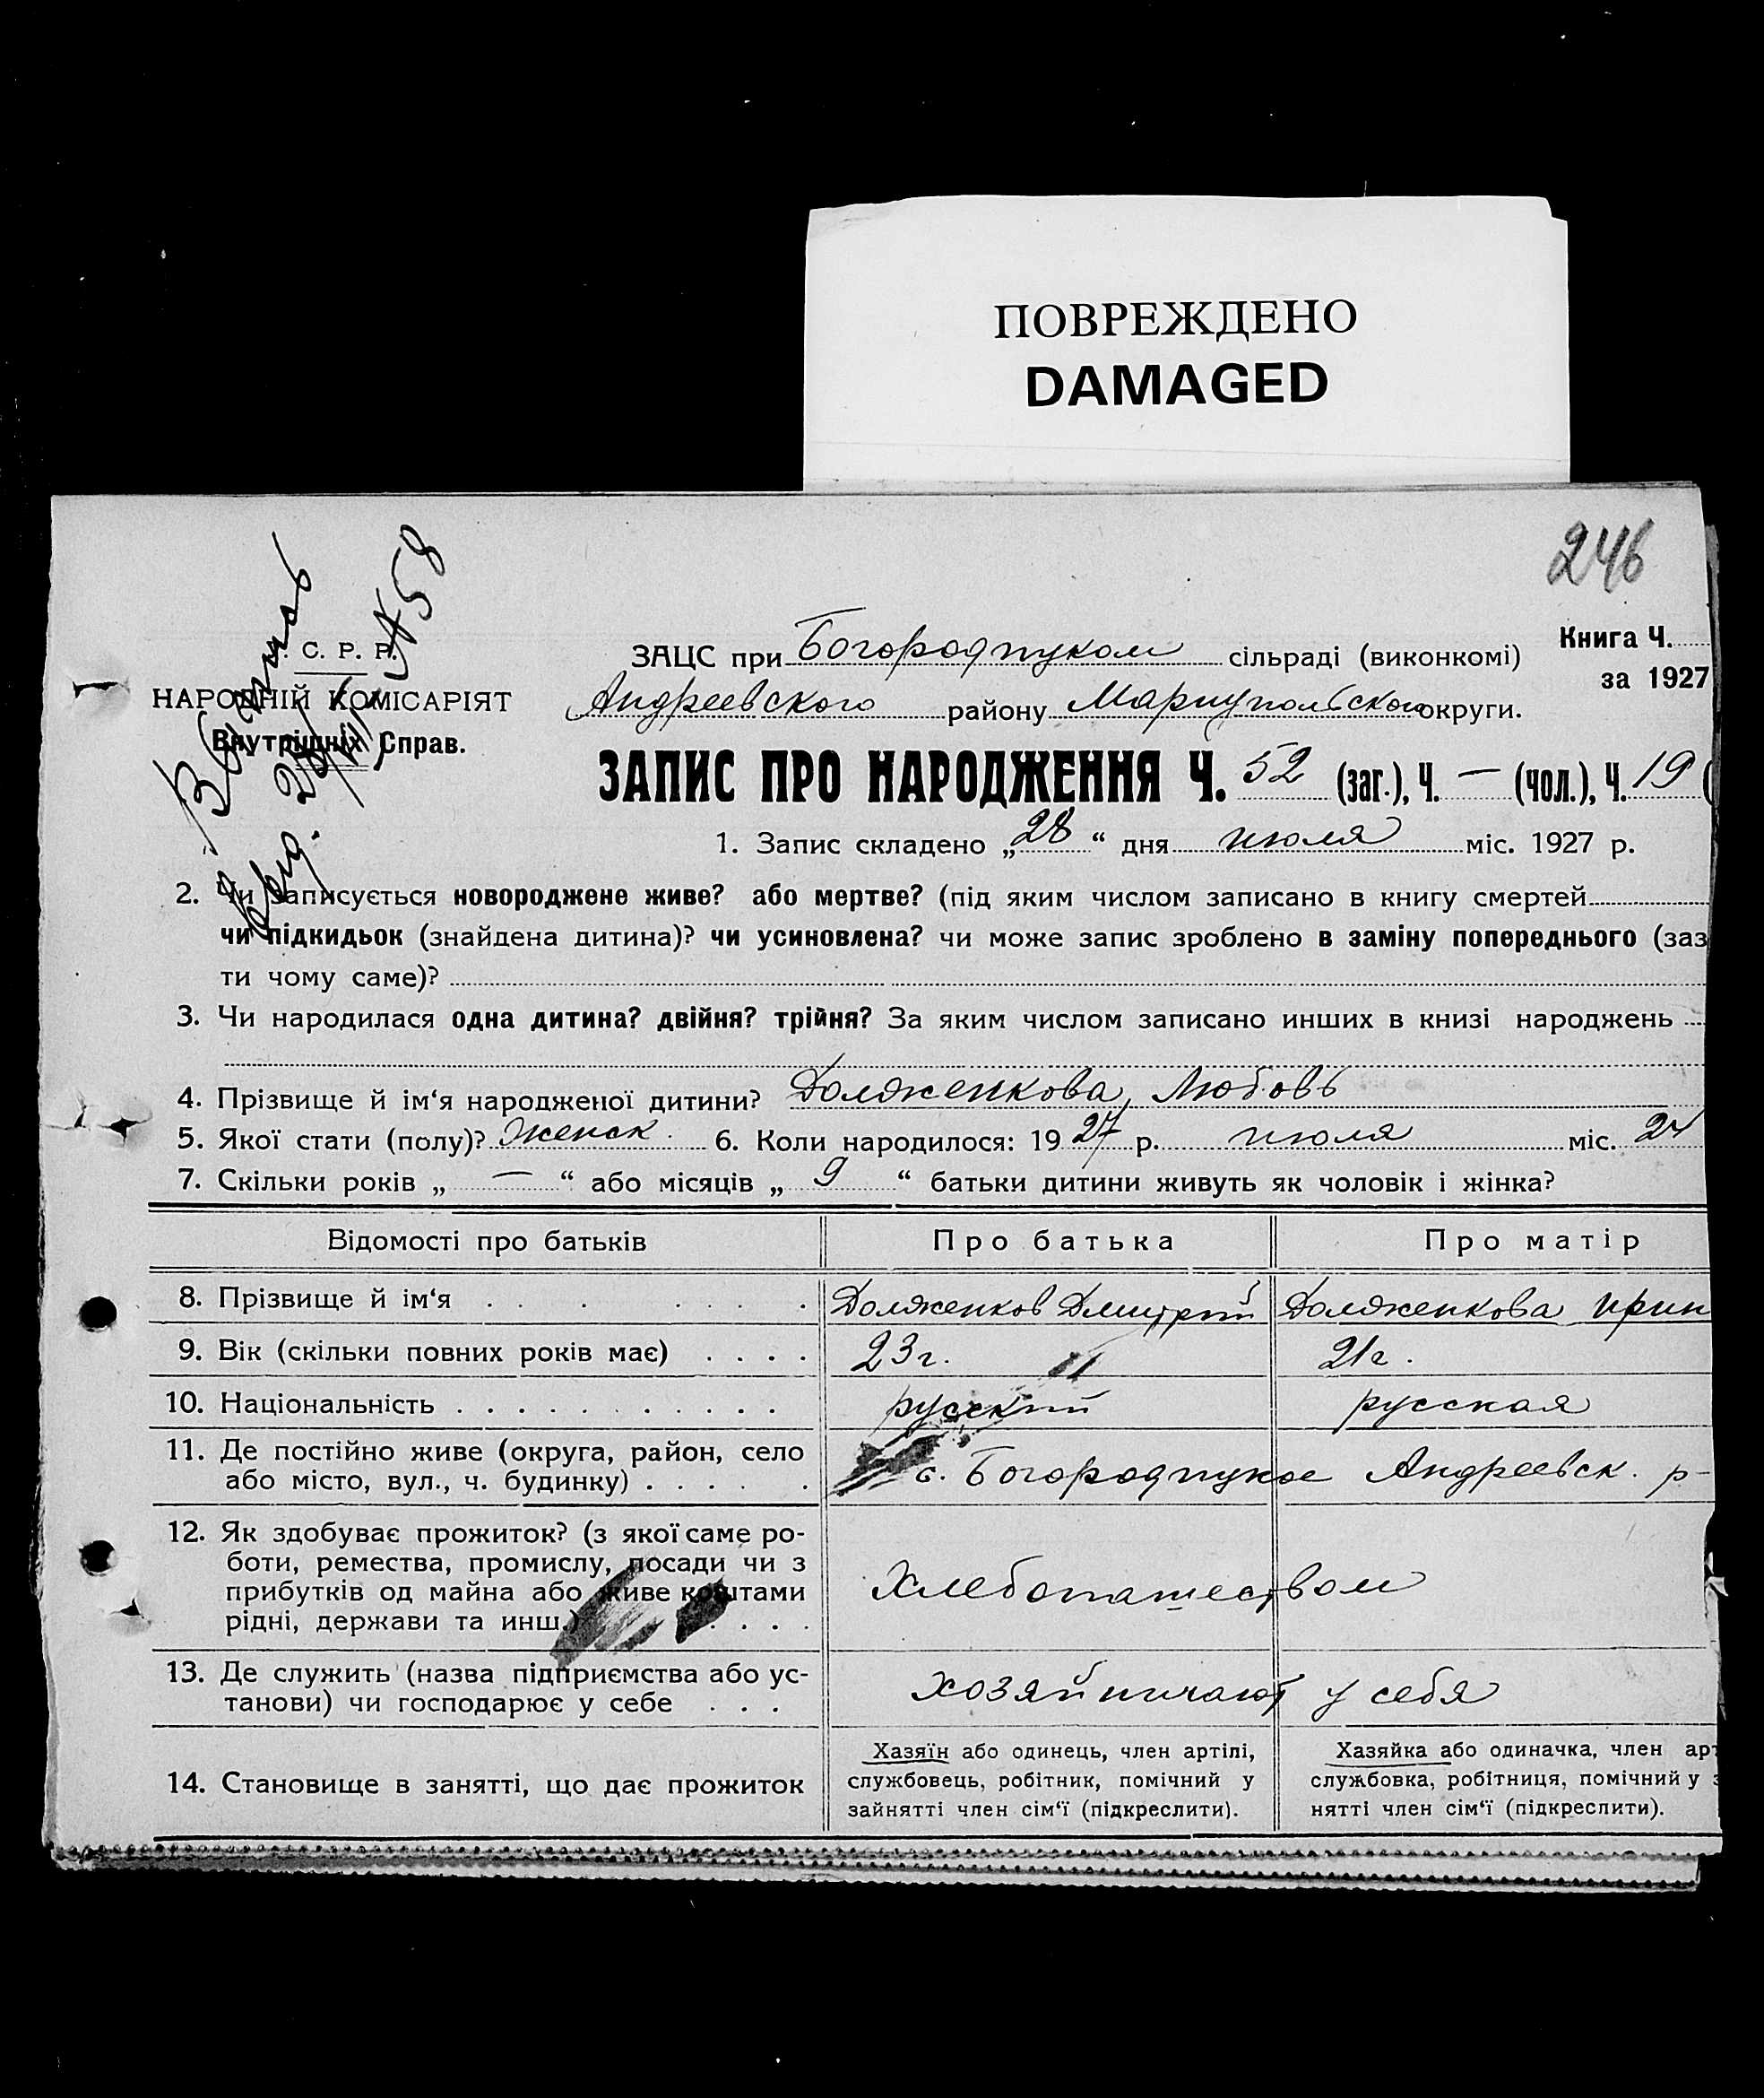 ПОВРЕЖДЕНО
DAMAGED
246
С. Р. Р.
НАРОДНІЙ КОМІСАРІЯТ
Внутрішніх Справ.
58
Книга Ч.
за 1927
ЗАЦС при сільраді (виконкомі)
Андреевского району Мариупольского округи.
ЗАПИС ПРО НАРОДЖЕННЯ Ч. 52 (заг.), Ч. — (чол.), Ч. 19 (
1. Запис складено „28“ дня июля міс. 1927 р.
2. Чи записується новороджене живе? або мертве? (під яким числом записано в книгу смертей
чи підкидьок (знайдена дитина)? чи усиновлена? чи може запис зроблено в заміну попереднього (заз
ти чому саме)?
3. Чи народилася одна дитина? двійня? трійня? За яким числом записано инших в книзі народжень
4. Прізвище й ім‘я народженої дитини? Долженкова, Любовь
5. Якої стати (полу)? Женск. 6. Коли народилося: 1927 р. июля міс. 24
7. Скільки років „ — “ або місяців „ 9 “ батьки дитини живуть як чоловік і жінка?
Відомості про батьків Про батька Про матір
8. Прізвище й ім‘я . . . . . . . Долженков Дмитрий Долженкова Ирин
9. Вік (скільки повних років має) . . . . 23 г. 21 г.
10. Національність . . . . . . . . . . . русский русская
11. Де постійно живе (округа, район, село
або місто, вул., ч. будинку) . . . . . с. Андреевск. р-
12. Як здобуває прожиток? (з якої саме ро-
боти, ремества, промислу, посади чи з
прибутків од майна або живе коштами
рідні, держави та инш.) . . . .
Хлебопашеством
13. Де служить (назва підприємства або ус-
танови) чи господарює у себе . . .
хозяйничают у себя
14. Становище в занятті, що дає прожиток
Хазяїн або одинець, член артілі,
службовець, робітник, помічний у
зайнятті член сім‘ї (підкреслити).
Хазяйка або одиначка, член арт
службовка, робітниця, помічний у з
нятті член сім‘ї (підкреслити).